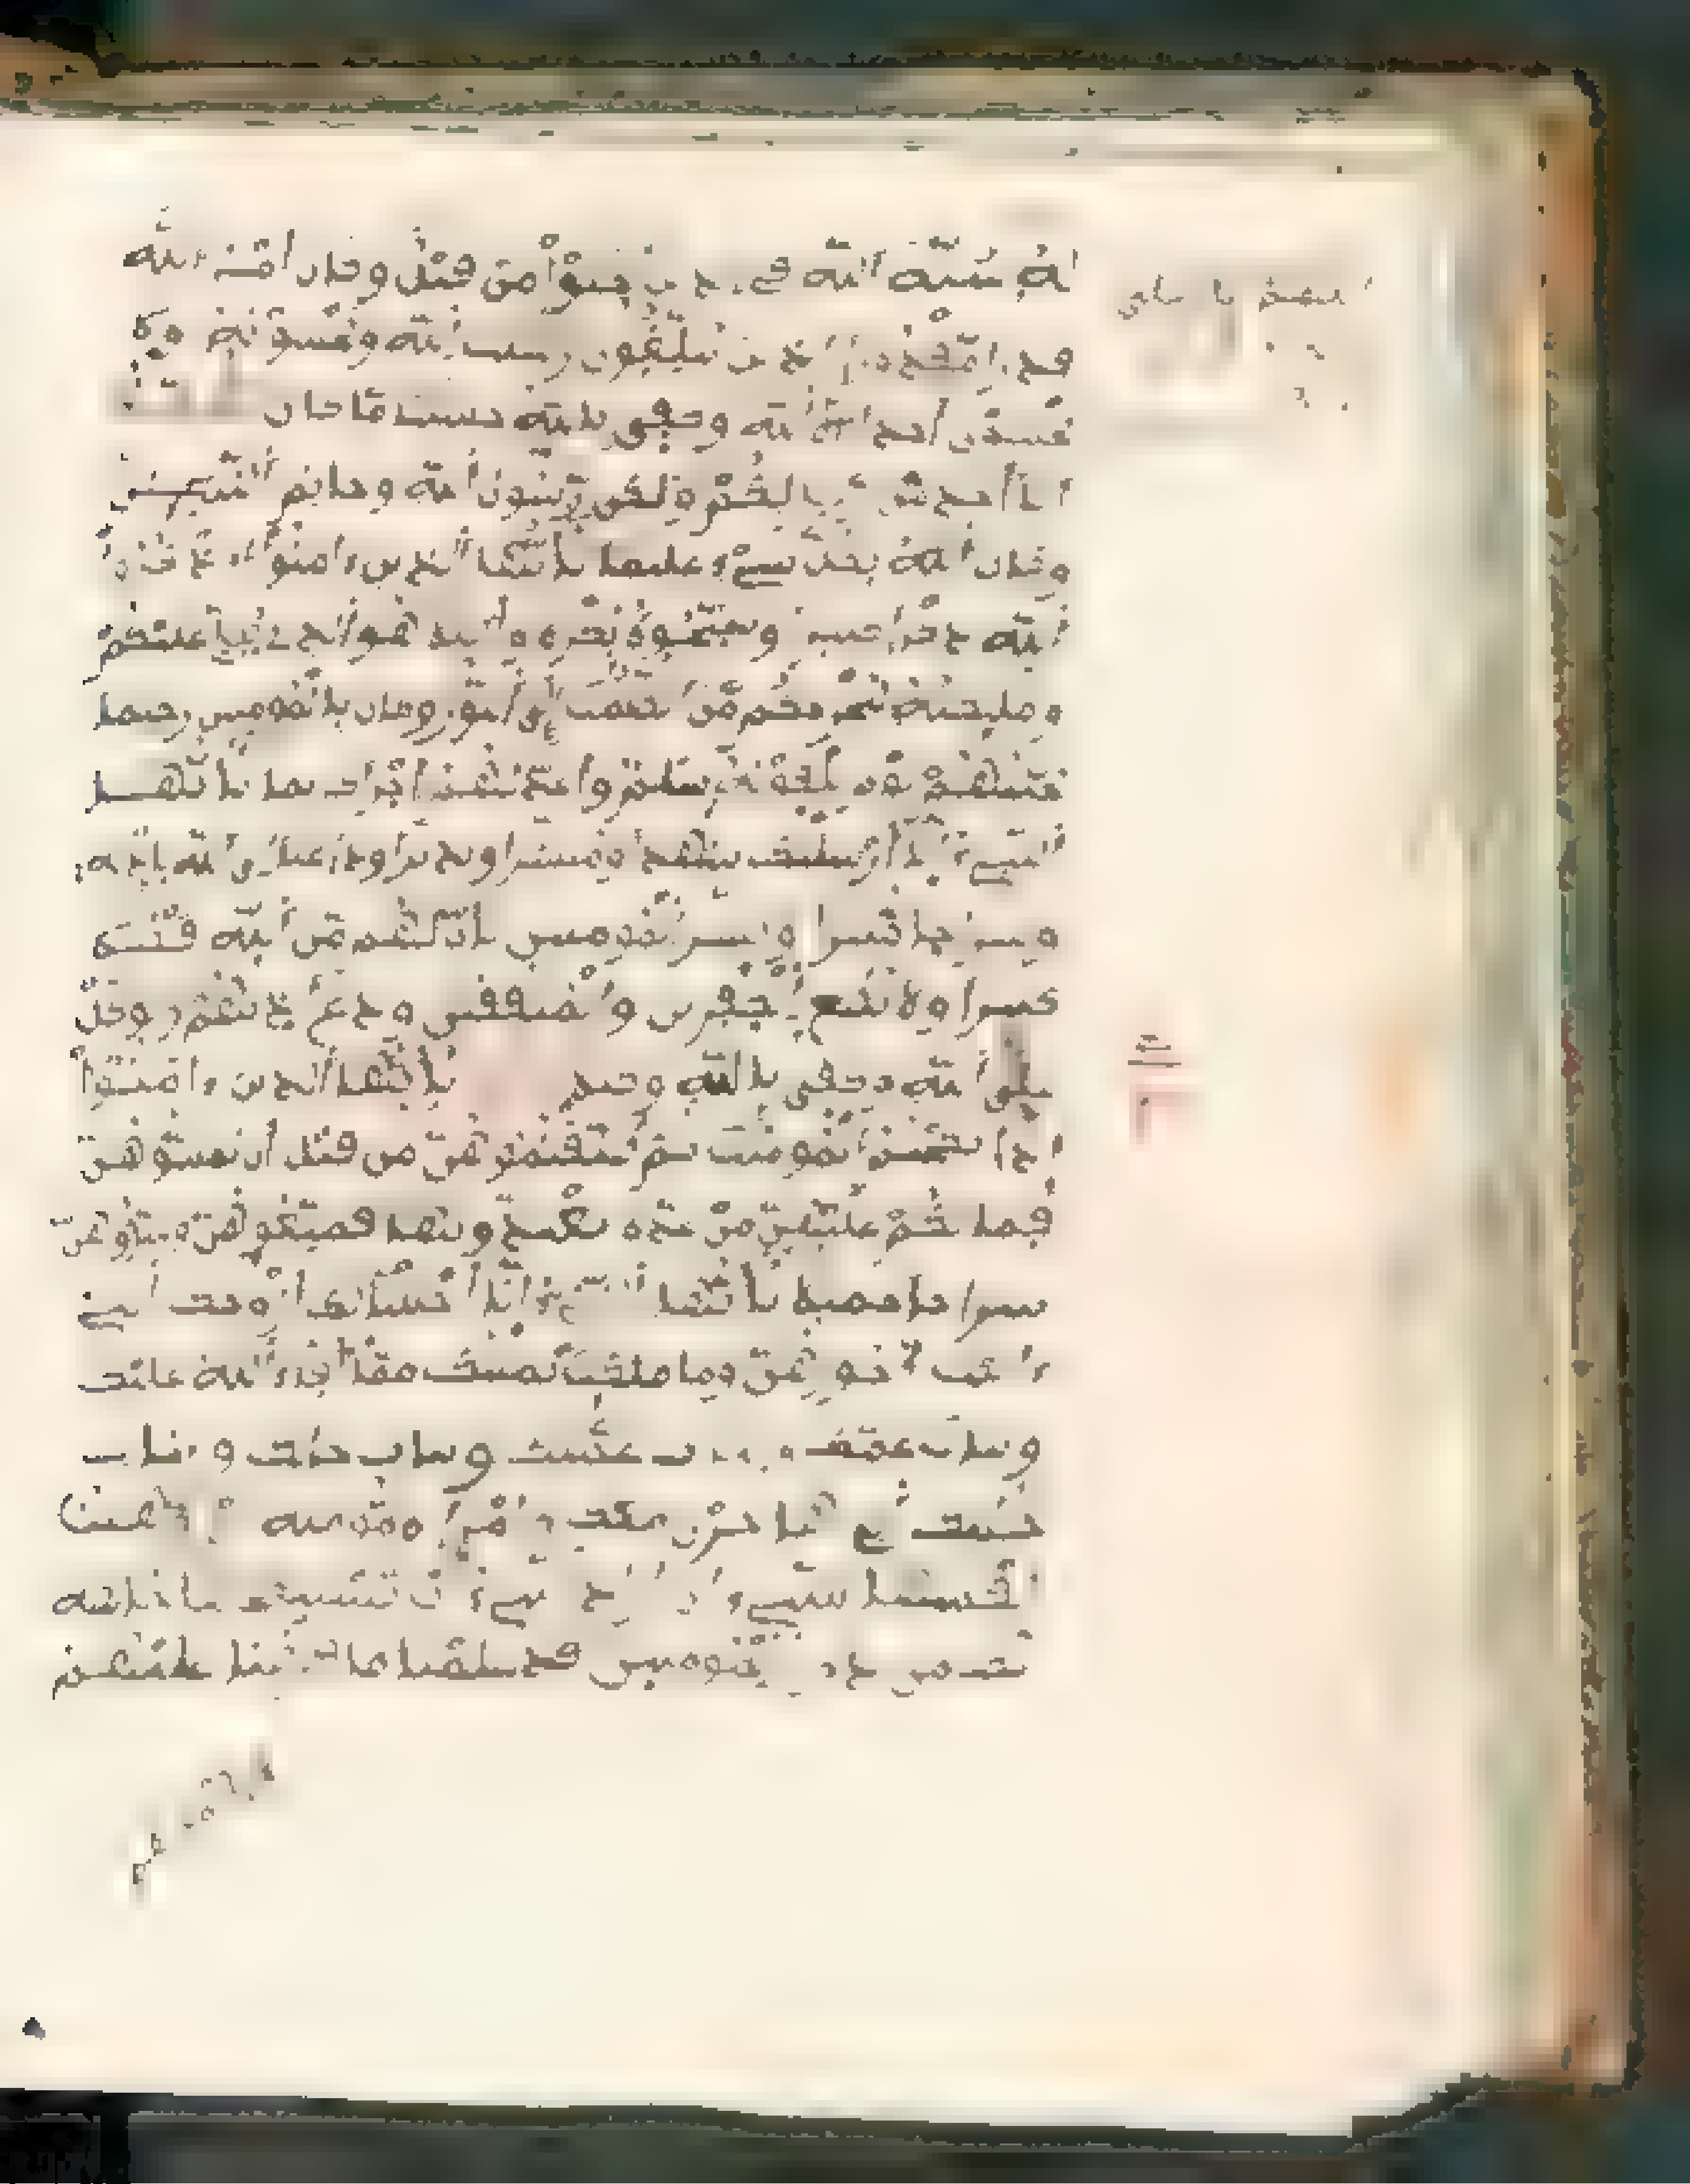 له سنة الله في الذين خلوا من قبل وكان امر الله
قدرا مقدورا الذين يبلغون رسلت الله ويخشونه ولا
يخشون احدا الا الله وكفى بالله حسيبا ما كان
ابا احد من رجالكم ولكن رسول الله وخاتم النبيين
وكان الله بكل شيء عليما يايها الذين ءامنوا اذكروا
الله ذكرا كثيرا وسبحوه بكرة واصيلا هو الذي يصلي عليكم
ومليكته ليخرجكم من الظلمت الى النور وكان بالمومنين رحيما
تحيتهم يوم يلقونه سلم واعد لهم اجرا كريما يايها
النبيء انا ارسلنك شهدا ومبشرا ونذيرا وداعيا الى الله باذنه
وسراجا منيرا وبشر المومنين بان لهم من الله فضلا
كبيرا ولا تطع الكفرين والمنفقين ودع اذيهم وتوكل
على الله وكفى بالله وكيلا يايها الذين ءامنوا
اذا نكحتم المومنت ثم طلقتموهن من قبل ان تمسوهن
فما لكم عليهن من عدة تعتدونها فمتعوهن وسرحوهن
سراحا جميلا يايها النبيء انا احللنا لك ازوجك التي
ءاتيت اجورهن وما ملكت يمينك مما افاء الله عليك
وبنات عمك وبنات عمتك وبنات خالك وبنات
خلتك التي هاجرن معك وامراة مومنة ان وهبت
نفسها للنبيء ان اراد النبيء ان يستنكحها خالصة
لك من دون المومنين قد علمنا ما فرضنا عليهم